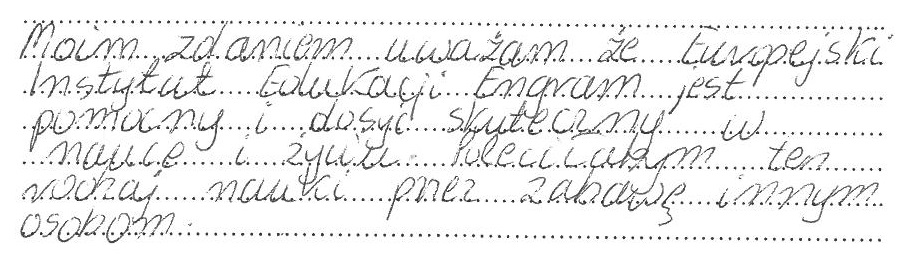 Moim zdaniem uważam że Europejski
Instytut Edukacji Engram jest
pomocny i dosyć skuteczny w
nauce i życiu. Poleciłabym ten
rodzaj nauki przez zabawę innym
osobom.